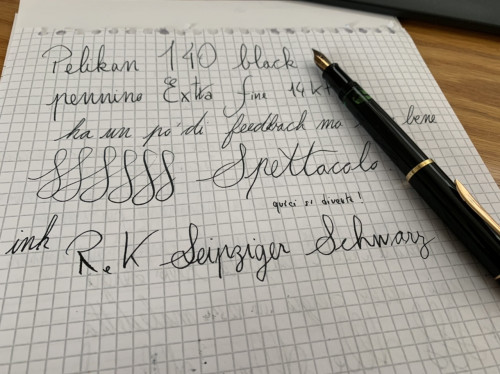 Pelikan 140 black
pennino Extra fine 14 k
ha un po' di feedback ma bene
SSSSSS Spettacolo
quasi si diverte!
ink R.K Leipziger Schwarz